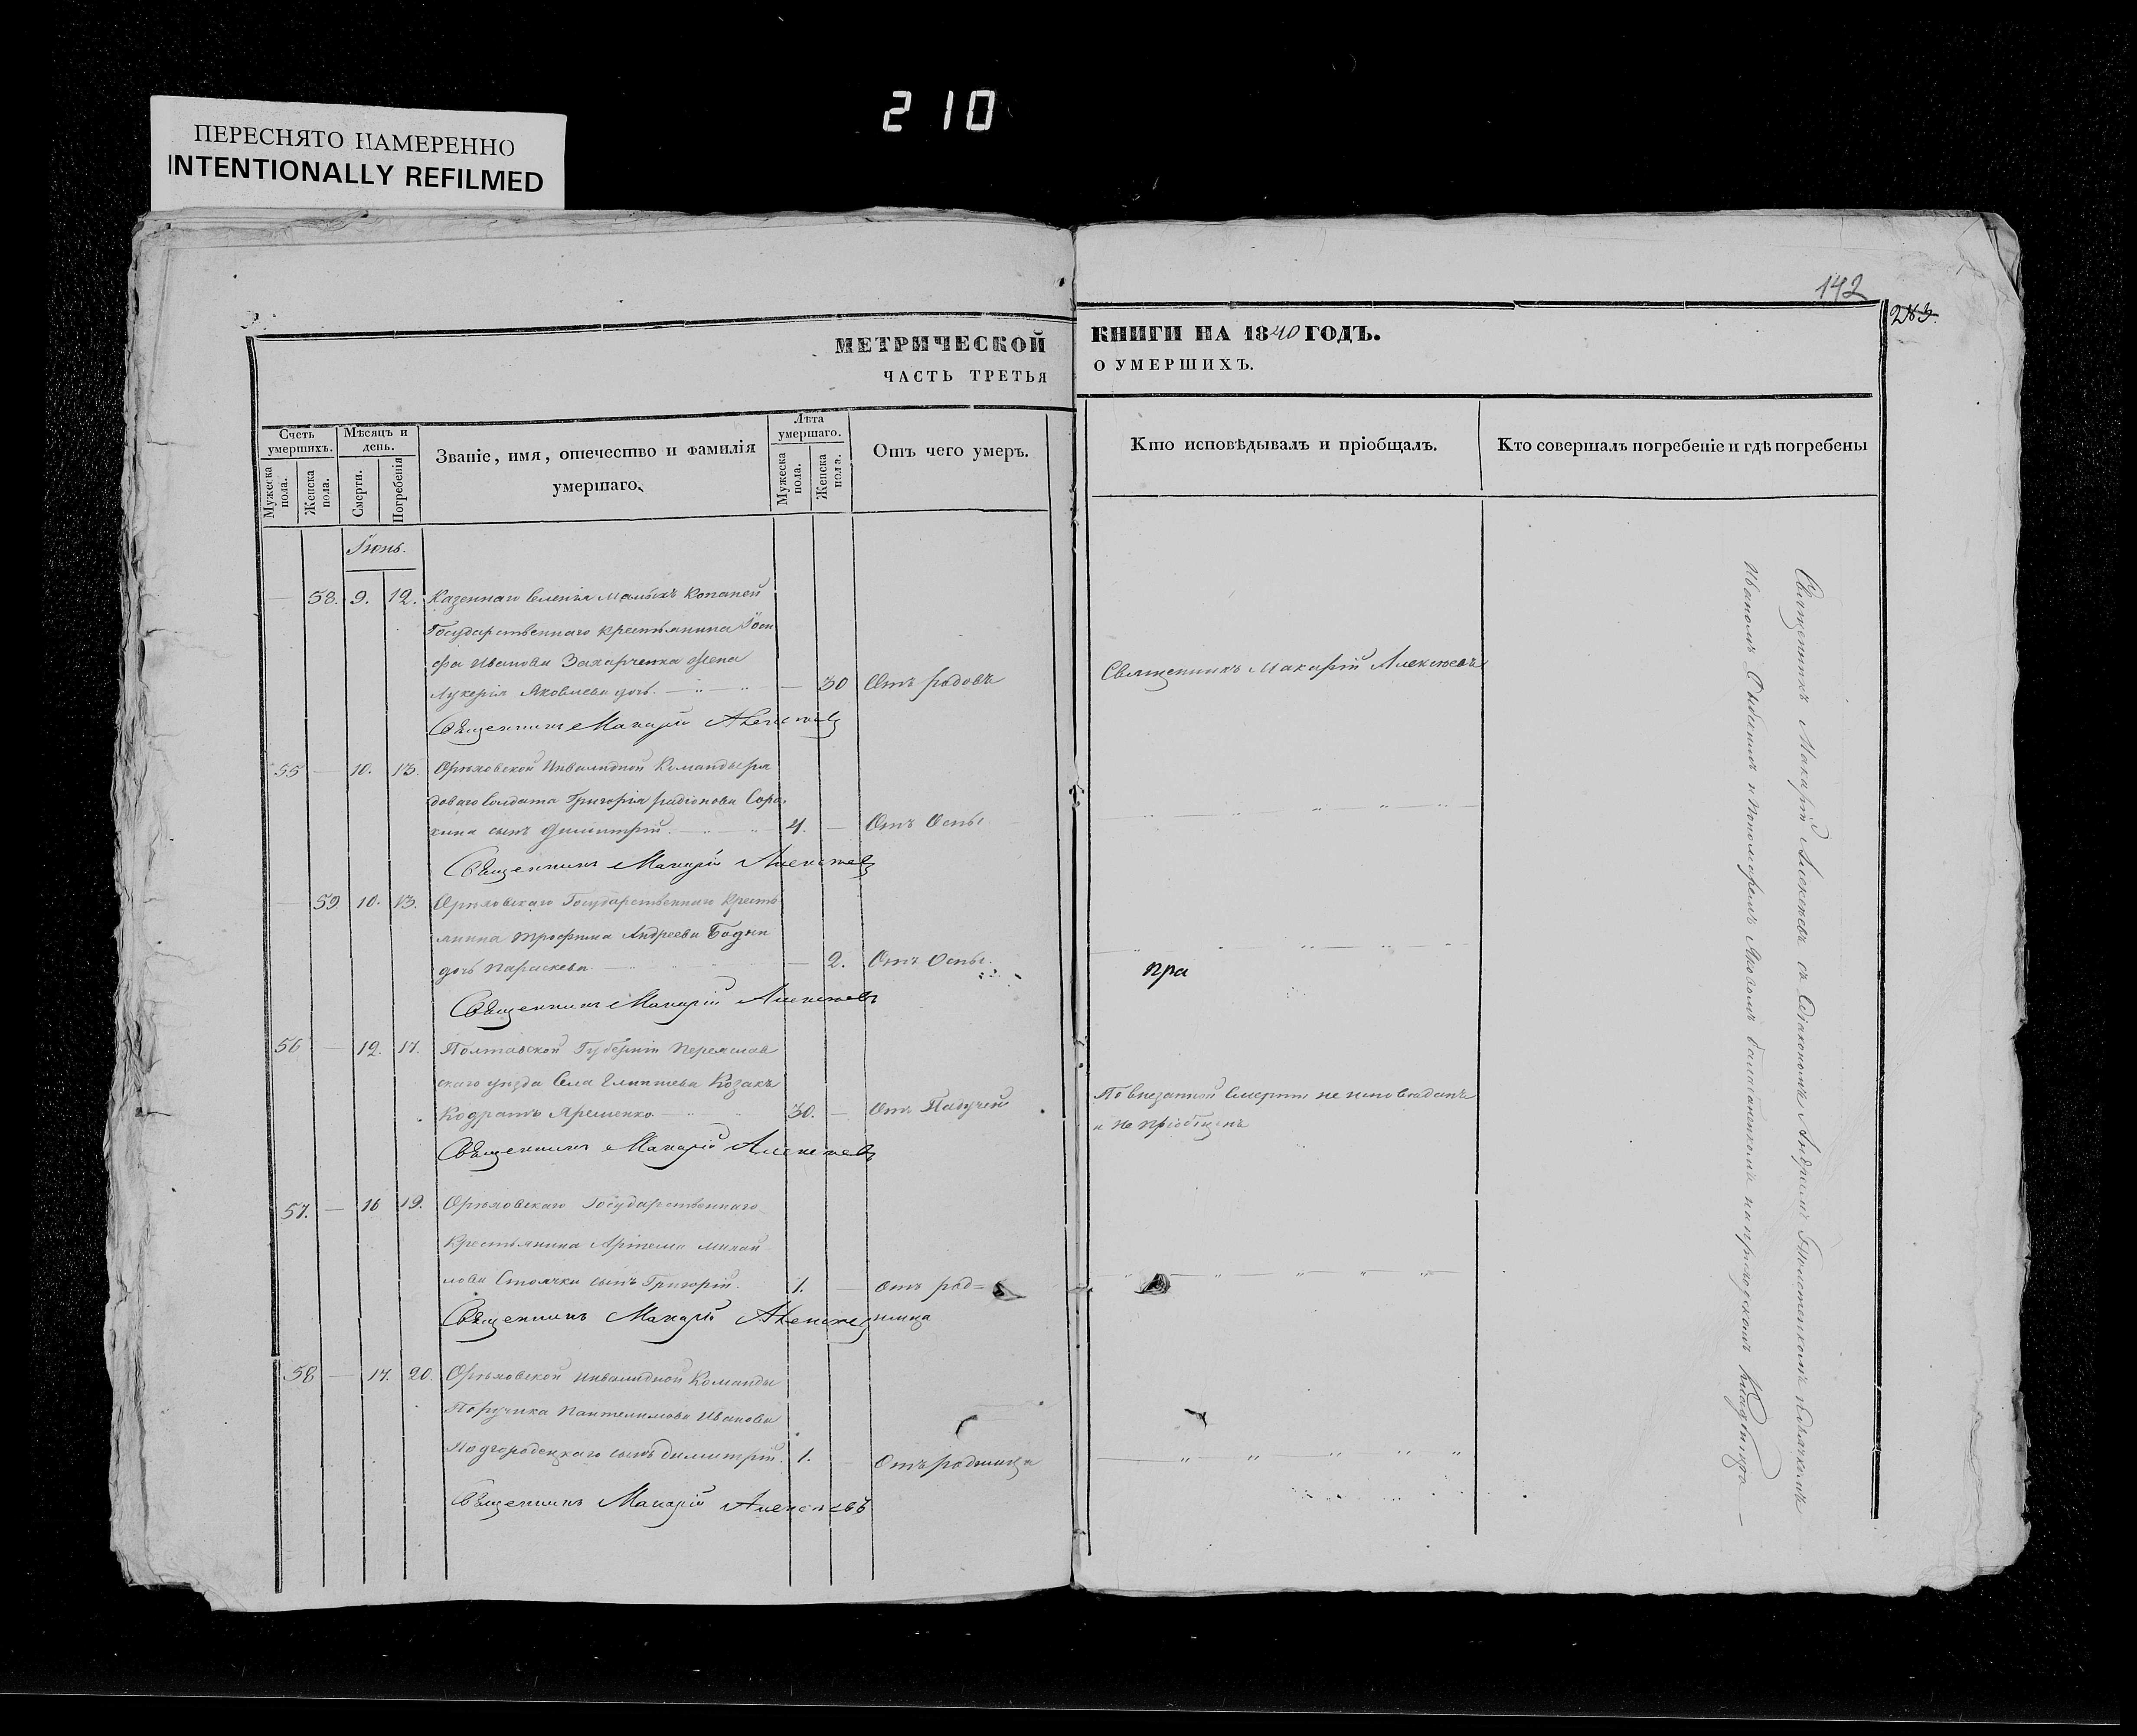 210
ПЕРЕСНЯТО НАМЕРЕННО
INTENTIONALLY REFILMED
142
283.
МЕТРИЧЕСКОЙ КНИГИ НА 1840 ГОДЪ.
ЧАСТЬ ТРЕТЬЯ О УМЕРШИХЪ.
Счетъ умершихъ.
Мужеска пола.
Женска пола.
Мѣсяцъ и день.
Смерти.
Погребенія
Званіе, имя, отечество и фамилія умершаго.
Лѣта умершаго.
Мужеска пола.
Женска пола.
Отъ чего умеръ.
Кто исповѣдывалъ и пріобщалъ.
Кто совершалъ погребеніе и гдѣ погребены
Іюнь.
— 58. 9. 12. Казеннаго селенія Малыхъ Копаней
Государственнаго крестьянина Іоси
фа Иванова Захарченка жена
Лукерія Яковлева дочь. — 30 Отъ родовъ Священникъ Макарій Алексѣевъ
Священникъ Макарій Алексѣевъ
55 — 10. 13. Орѣховской Инвалидной Команды ря
доваго Солдата Григорія радіонова Соро
кина сынъ Димитрій. 4. — Отъ Оспы
Священникъ Макарій Алексѣевъ
— 59. 10. 13. Орѣховскаго Государственнаго Кресть
янина Трофима Андреева
дочь Параскева. — 2. Отъ Оспы.
пра
Священникъ Макарій Алексѣевъ
56 — 12. 17. Полтавской Губерніи Переяслав
скаго уѣзда Села Козакъ
Кодратъ Яременко. 30. — Отъ Падучей
По внезапной Смерти не исповѣданъ
и не пріобщенъ
Священникъ Макарій Алексѣевъ
57. — 16 19. Орѣховскаго Государственнаго
Крестьянина Артема Михай
лова сынъ Григорій. 1. — Отъ род=
имца
Священникъ Макарій Алексѣевъ
58 — 17. 20. Орѣховской Инвалидной Команды
Поручика Пантелимова Иванова
Подгородецкаго сынъ Димитрій. 1. — Отъ родимца
Священникъ Макарій Алексѣевъ
Священникъ Макарій Алексѣевъ съ Діакономъ Андреемъ
Иваномъ и Пономаремъ Яковомъ на приходскомъ Кладбищѣ